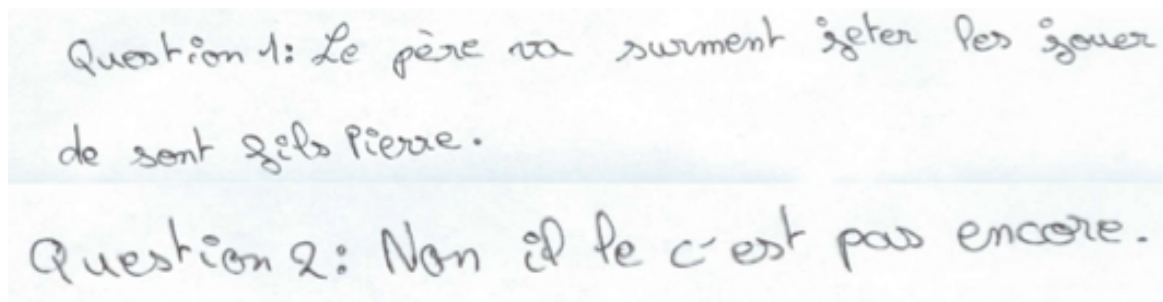 Question 1: Le père va surment jeter les jouer
de sont fils Pierre.
Question 2: Non il le c'est pas encore.